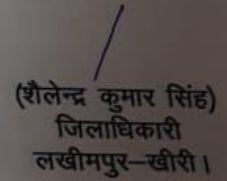 (शैलेन्द्र कुमार सिंह)
जिलाधिकारी
लखीमपुर–खीरी।